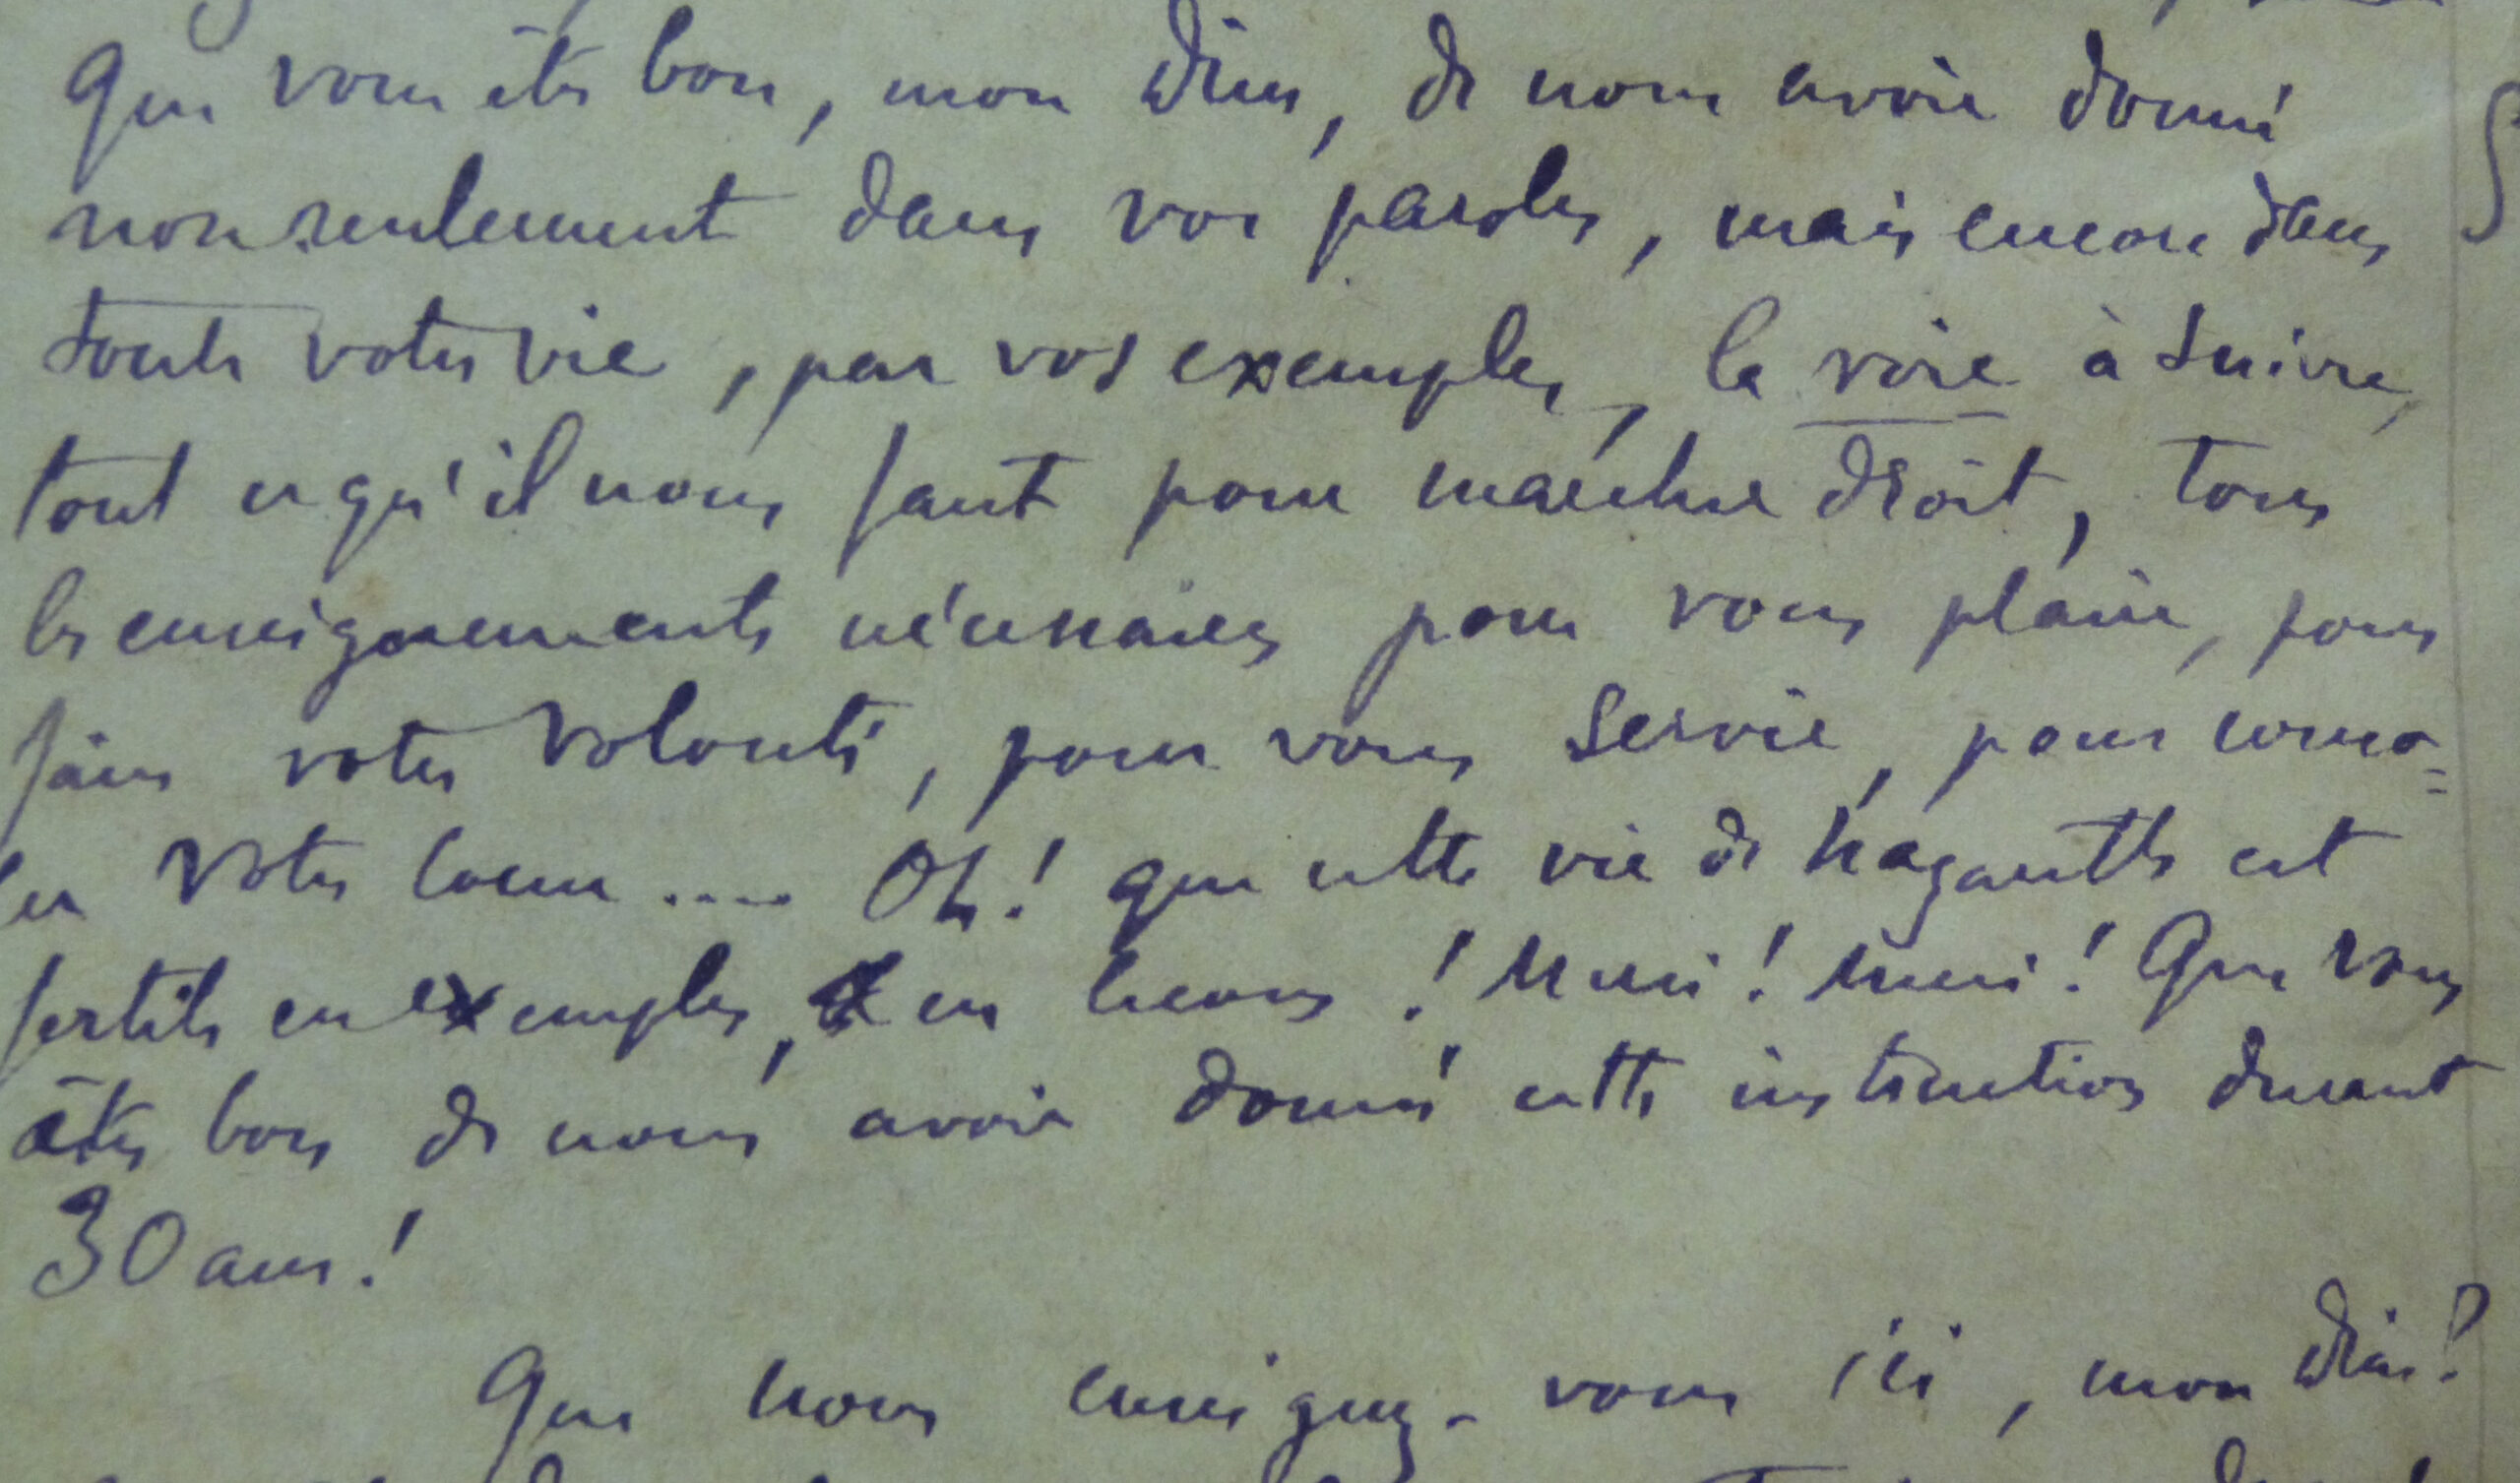 Que vous êtes bon, mon Dieu, de nous avoir donné
non seulement dans vos paroles, mais encore dans
toute votre vie, par vos exemples, la voie à suivre,
tout ce qu'il nous faut pour marcher droit, tous
les enseignements nécessaires pour vous plaire, pour
faire votre volonté, pour vous servir, pour conso=
ler votre Coeur .... Oh! que cette vie de Nazareth est
fertile en exemples, et en leçons! Merci! Merci! Que vous
êtes bon de nous avoir donné cette instruction durant
30 ans!
Que nous enseignez-vous ici, mon Dieu?